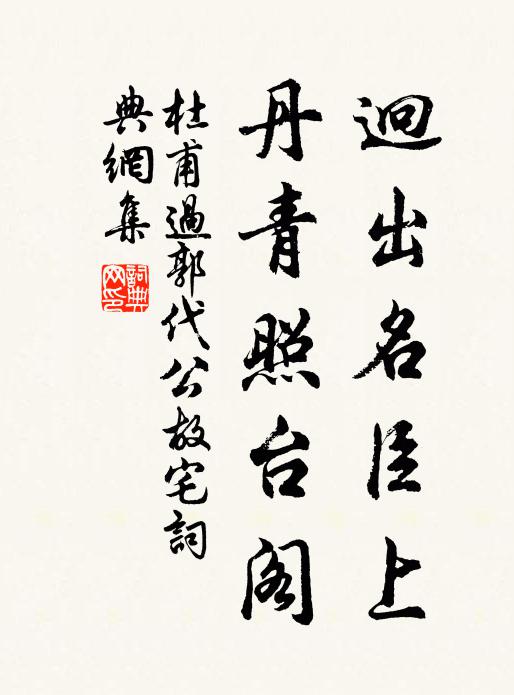 迥出名臣上
丹青照台阁
杜甫過郭代公故宅詞
典網集
詞典網印